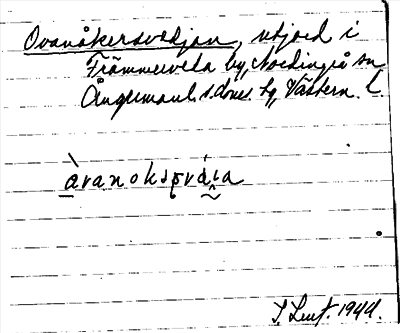 Ovanåkersvedjan, utjord i
Främmerveda by, Nordingrå sn
Ångermanl. s. doms. hg, Västern. l.
àvanoksʂvája
S. Lent. 1944.